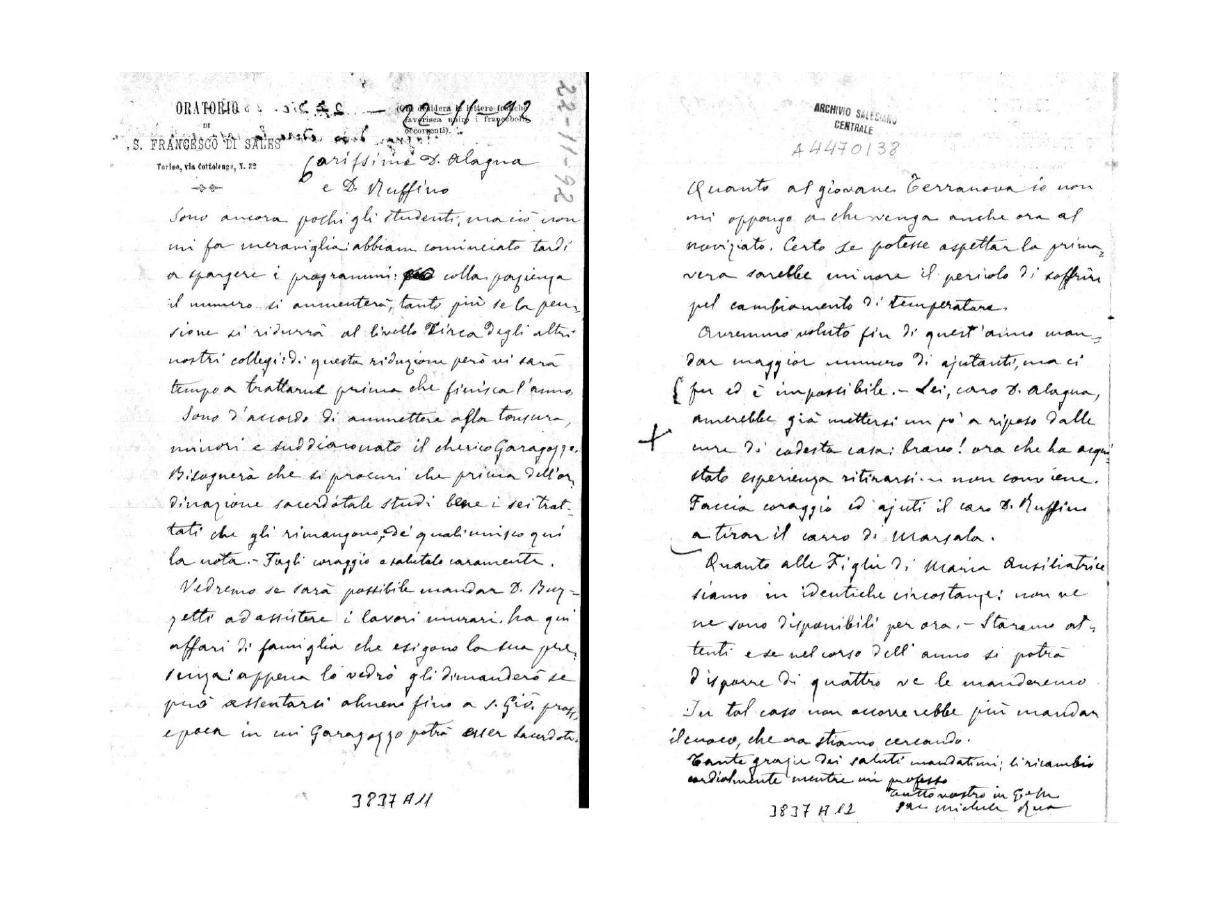 ORATORIO
DI
S. FRANCESCO DI SALES
Torino, via Cottolengo, N. 32
(Chi desidera le lettere franche
favorisca unire i francobolli
occorrenti).
22-11-92
22-11-92
Carissimi D. Alagna
e D. Ruffino
Sono ancora pochi gli studenti, ma ciò non
mi fa meraviglia: abbiam cominciato tardi
a spargere i programmi: colla pazienza
il numero si aumenterà, tanto più se la pen-
sione si ridurrà al livello circa degli altri
nostri collegi: di questa riduzione però vi sarà
tempo a trattarne prima che finisca l'anno.
Sono d'accordo di ammettere alla tonsura,
minori e suddiaconato il cherico Garagozzo.
Bisognerà che si procuri che prima dell'or-
dinazione sacerdotale studi bene i sei trat-
tati che gli rimangono, de' quali unisco qui
la nota. - Fagli coraggio e salutalo caramente.
Vedremo se sarà possibile mandar D. Buz-
zetti ad assistere i lavori murari. ha qui
affari di famiglia che esigono la sua pre-
senza: appena lo vedrò gli dimanderò se
può assentarsi almeno fino a S. Giò. pross.
epoca in cui Garagozzo potrà esser sacerdote.
3837 A 11
ARCHIVIO SALESIANO
CENTRALE
A4470138
Quanto al giovane Terranova io non
mi oppongo a che venga anche ora al
noviziato. Certo se potesse aspettar la prima-
vera sarebbe minore il pericolo di soffrire
pel cambiamento di temperatura.
Avremmo voluto fin di quest'anno man-
dar maggior numero di ajutanti, ma ci
fu ed è impossibile. - Lei, caro D. Alagna,
amerebbe già mettersi un pò a riposo dalle
cure di codesta casa: bravo! ora che ha acqui-
stato esperienza ritirarsi... non conviene.
Faccia coraggio ed ajuti il caro D. Ruffino
a tirar il carro di Marsala.
Quanto alle Figlie di Maria Ausiliatrice
siamo in identiche circostanze: non ve
ne sono disponibili per ora. - Staremo at-
tenti e se nel corso dell'anno si potrà
disporre di quattro ve le manderemo.
In tal caso non occorrerebbe più mandar
il cuoco, che ora stiamo cercando.
Tante grazie dei saluti mandatimi; li ricambio
cordialmente mentre mi professo
tutto vostro in G. e M.
Sac. Michele Rua
3837 A 12